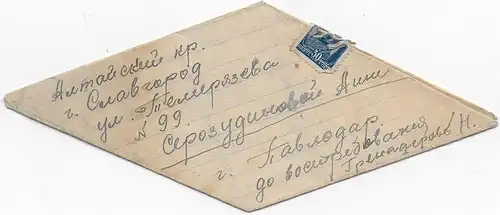 Алтайский кр.
г. Славгород
ул. Темирязева
N 99.
Серозудиновой Ании
г. Павлодар.
до востребования
Гренадерова Н.
30